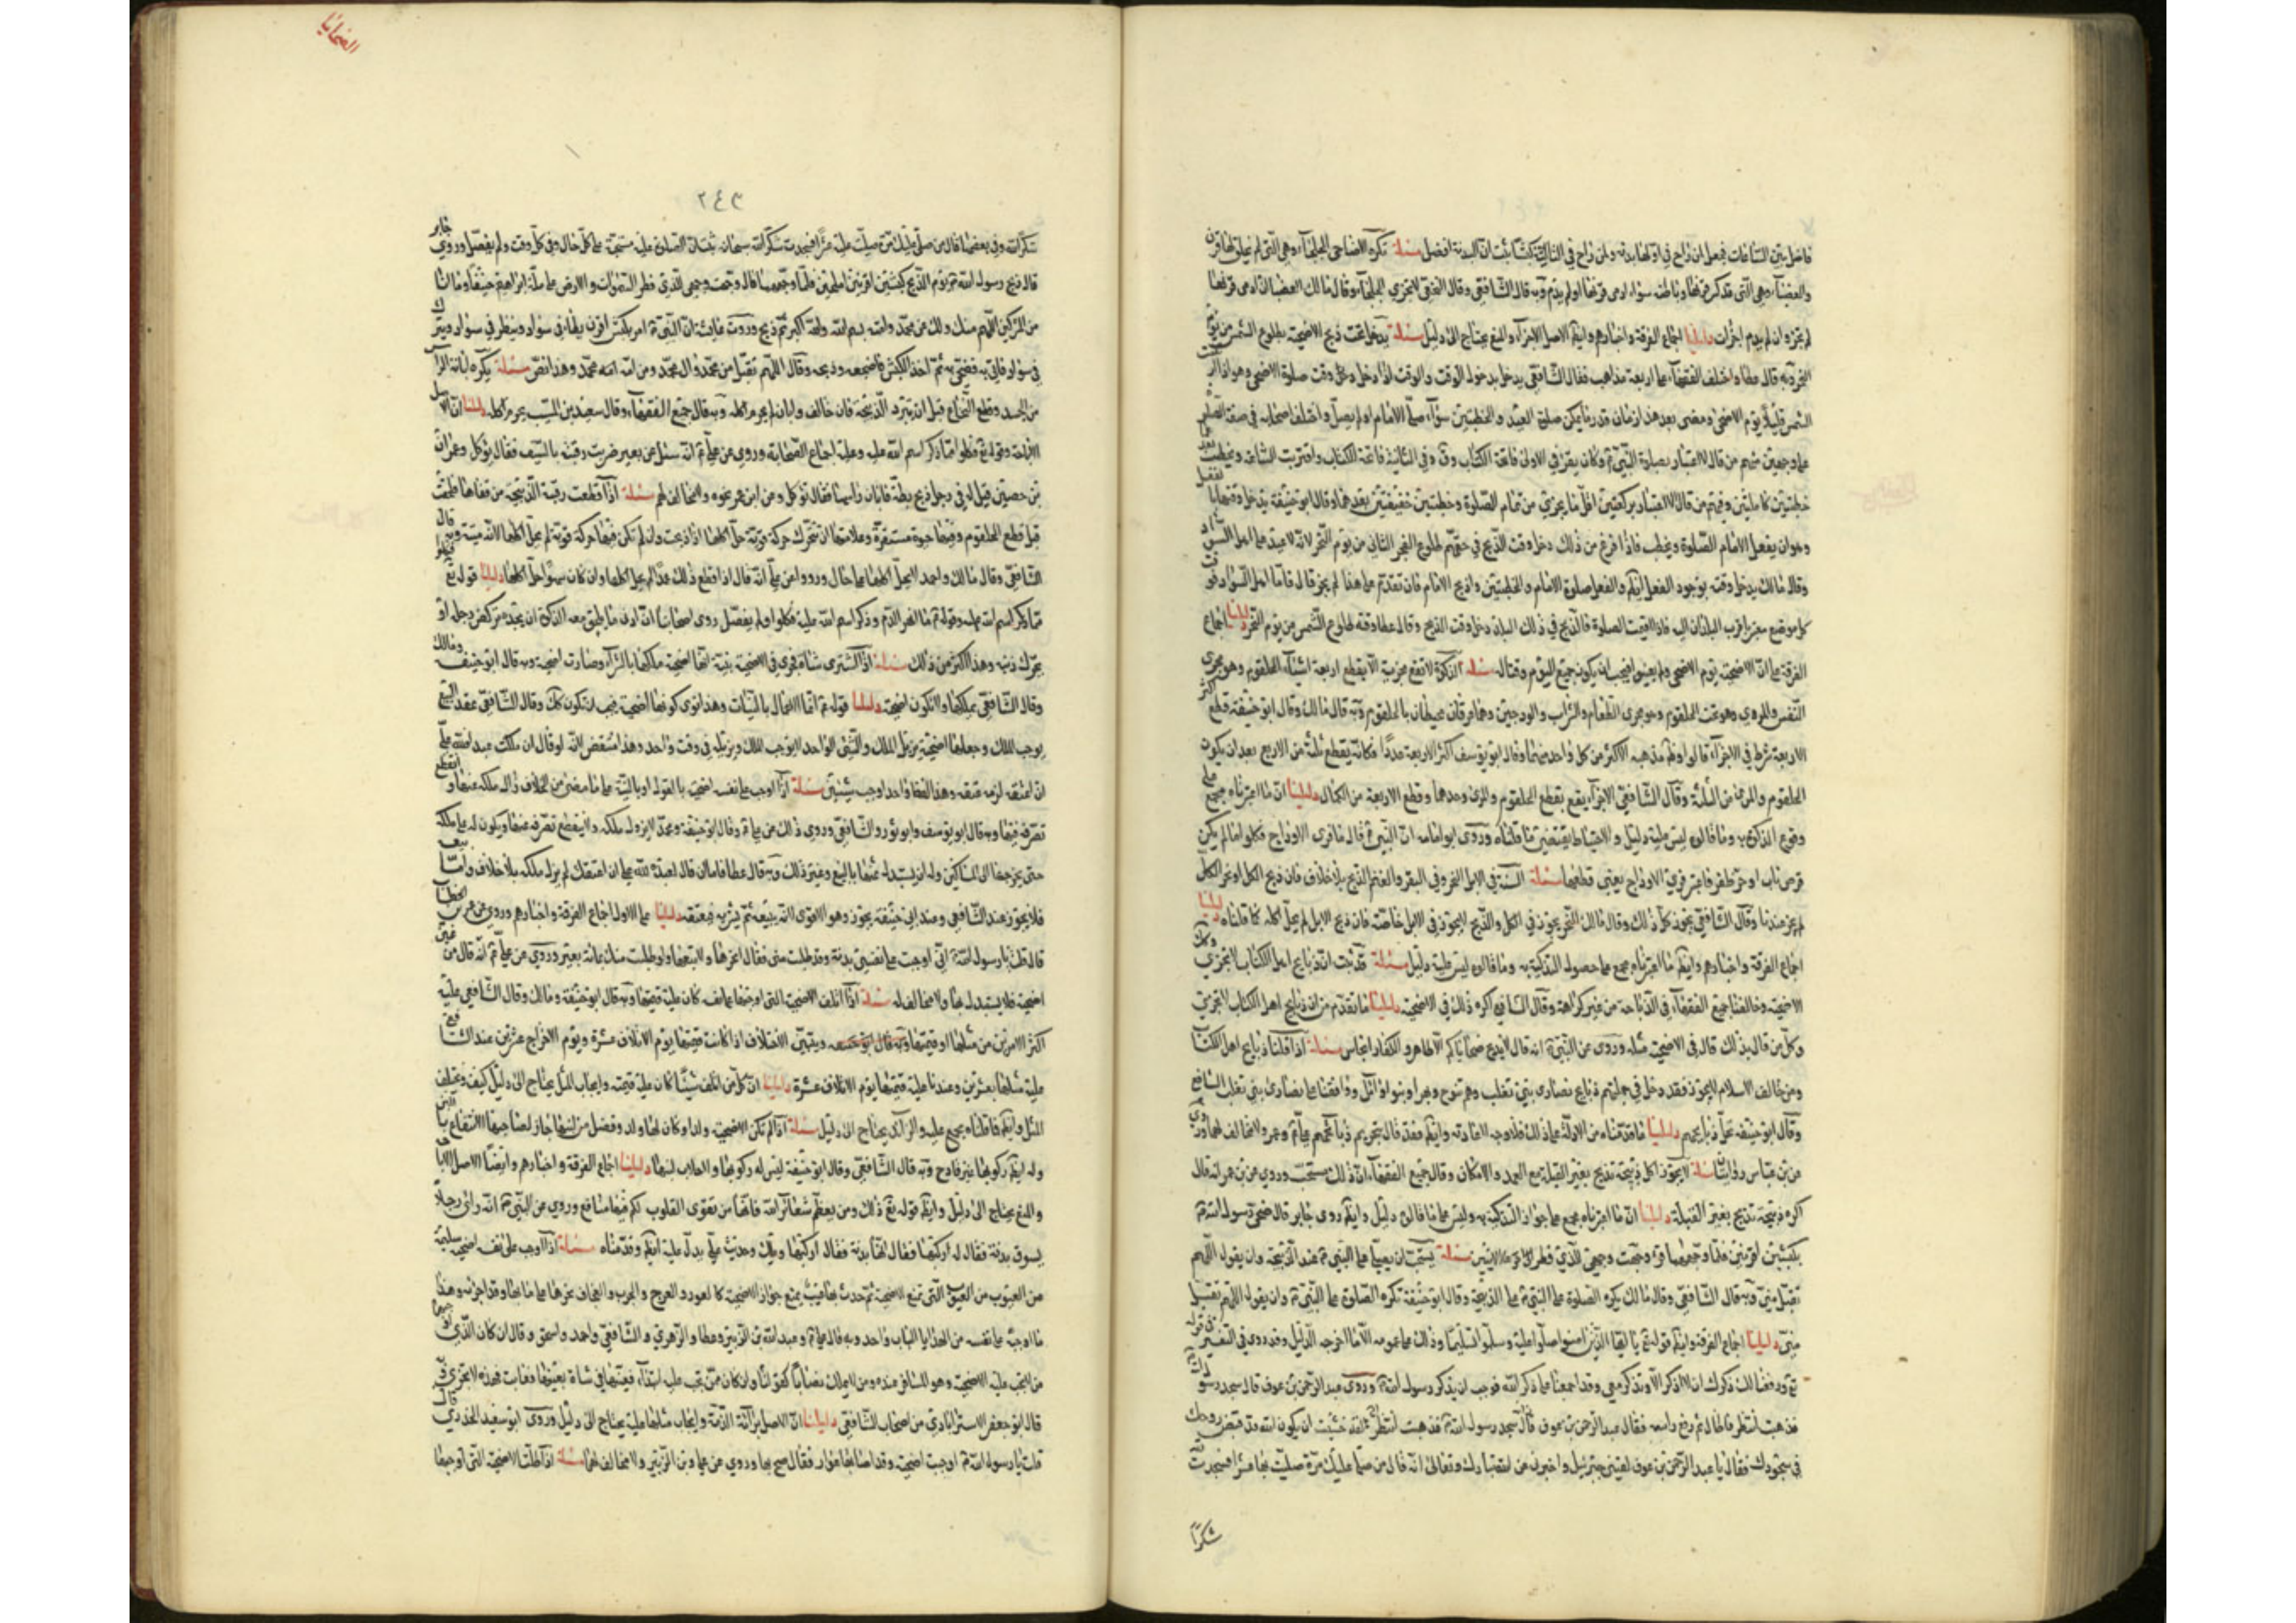 فاضل بين الساعات فجعل لمن راح في اولها بدنة ولمن راح في الثالثة كبشا ثبت ان البدنة افضل مسئلة تكره الاضاحي الجلحاء وهي التي لم يخلق لها قرن
والعضباء وهي التي قد كسر قرنها وباطنه سواء ادمى قرنها او لم يدم وبه قال الشافعي وقال النخعي لا تجزي الجلحاء وقال مالك العضباء ان ادمى قرنها
لم يجز وان لم يدم اجزأت دليلنا اجماع الفرقة واخبارهم وايضا الاصل الاجزاء والمنع يحتاج الى دليل مسئلة يدخل وقت ذبح الاضحية بطلوع الشمس من يوم
النحر وبه قال عطا واختلف الفقهاء على اربعة مذاهب فقال الشافعي يدخل بدخول الوقت والوقت اذا دخل وقت صلوة الاضحى وهو اذا ارتفعت
الشمس قليلا يوم الاضحى ومضى بعد هذا زمان قدر ما يمكن صلوة العيد والخطبتين سواء صلى الامام او لم يصل واختلف اصحابه في صفة الصلوة
على وجهين منهم من قال الاعتبار بصلوة النبي وكان يقرأ في الاولى فاتحة الكتاب وق وفي الثانية فاتحة الكتاب واقتربت الساعة ويخطب
خطبتين كاملتين ومنهم من قال الاعتبار بركعتين اقل ما يجزي من تمام الصلوة وخطبتين خفيفتين بعدهما وقال ابو حنيفة يدخل وقتها
وهو ان يفعل الامام الصلوة ويخطب فاذا فرغ من ذلك دخل وقت الذبح في حقهم لطلوع الفجر الثاني من يوم النحر لانه لا عيد على اهل السواد
وقال مالك يدخل وقته بوجود الفعل ايضا والفعل صلوة الامام والخطبتين وذبح الامام فان تقدم على هذا لم يجز قال فاما اهل السواد
كل موضع معتبر باقرب البلدان اليه فاذا اقيمت الصلوة والذبح في ذلك البلد دخل وقت الذبح وقال عطا وقته طلوع الشمس من يوم النحر دليلنا اجماع
الفرقة على ان الاضحية يوم الاضحى ولم يعين فيجب ان يكون جميع اليوم وقتا له مسئلة الذكوة لا تقع مجزية الا بقطع اربعة اشياء الحلقوم وهو مجرى
النفس والمري وهو تحت الحلقوم وهو مجرى الطعام والشراب والودجين وهما عرقان محيطان بالحلقوم وبه قال مالك وقال ابو حنيفة قطع اكثر
الاربعة شرط في الاجزاء قالوا وظاهر مذهبه الاكثر من كل واحد منها وقال ابو يوسف اكثر الاربعة عددا فكانه يقطع ثلثة من الاربع بعد ان يكون
الحلقوم والمري من الثلثة وقال الشافعي الاجزاء يقع بقطع الحلقوم والمري وحدهما وقطع الاربعة من الكمال دليلنا ان ما اعتبرناه مجمع على
وقوع الذكوة به وما قالوه ليس عليه دليل والاحتياط يقتضي ما قلناه وروى ابو امامة ان النبي قال ما فرى الاوداج فكلوا ما لم يكن
قرض ناب او حز ظفر فاعتبر فري الاوداج يعني قطعها مسئلة السنة في الابل النحر وفي البقر والغنم الذبح بلا خلاف فان ذبح الكل او نحر الكل
لم يجز عندنا وقال الشافعي يجوز كل ذلك وقال مالك النحر يجوز في الكل والذبح لا يجوز في الابل خاصة فان ذبح الابل لم يحل اكله كما قلناه دليلنا
اجماع الفرقة واخبارهم وايضا ما اعتبرناه مجمع على حصول التذكية به وما قالوه ليس عليه دليل مسئلة قد ثبت ان ذبايح اهل الكتاب لا تجزي
الاضحية وخالفنا جميع الفقهاء في الذباحة من غير كراهة وقال الشافعي اكره ذلك في الاضحية دليلنا ما تقدم من ان ذبايح اهل الكتاب لا تجزي
وكل من قال بذلك قال في الاضحية مثله وروى عن النبي انه قال لا يذبح ضحاياكم الا طاهر والكفار انجاس مسئلة اذا قلنا ذبايح اهل الكتاب
ومن خالف الاسلام لا يجوز فقد دخل في جملتهم ذبايح نصارى بني تغلب وهم تنوخ وبهرا وبنو وائل ووافقنا على نصارى بني تغلب الشافعي
وقال ابو حنيفة تحل ذبايحهم دليلنا ما قدمناه من الادلة على ذلك فلا وجه لاعادته وايضا فقد قال بتحريم ذبايحهم علي وعمر ولا مخالف لهما
مسئلة لا يجوز اكل ذبيحة تذبح بغير القبلة مع العمد والامكان وقال جميع الفقهاء ان ذلك مستحب وروي عن بن عمر انه قال
اكره ذبيحة تذبح بغير القبلة دليلنا ان ما اعتبرناه مجمع على جواز التذكية به وليس على ما قالوه دليل وايضا روى جابر قال ضحى رسول الله
بكبشين اقرنين فلما وجههما قرأ وجهت وجهي للذي فطر الايتين مسئلة يستحب ان يصلي على النبي عند الذبيحة وان يقول اللهم
تقبل مني وبه قال الشافعي وقال مالك يكره الصلوة على النبي على الذبيحة وقال ابو حنيفة تكره الصلوة على النبي وان يقول اللهم تقبل
مني دليلنا اجماع الفرقة وايضا قوله تع يا ايها الذين امنوا صلوا عليه وسلموا تسليما وذلك على عمومه الا ما اخرجه الدليل وقد روي في التفسير
ورفعنا لك ذكرك ان لا اذكر الا وتذكر معي وقد اجمعنا على ذكر الله فوجب ان يذكر رسول الله وروى عبد الرحمن بن عوف قال سجد رسول
فذهبت انظر فاطال ثم رفع راسه فقال عبد الرحمن بن عوف لقد خشيت ان يكون الله قد قبض روحك
في سجودك فقال يا عبد الرحمن بن عوف لقيني جبرئيل واخبرني عن الله تبارك وتعالى انه قال من صلى عليك مرة صليت بها عشرا فسجدت
شكرا
الضحايا
٢٤٣
شكر الله وفي بعضها قال من صلى عليك مرة صليت عليه عشرا فسجدت شكر الله سبحانه فثبت ان الصلوة عليه مستحبة على كل حال وفي كل وقت ولم يفصل وروى جابر
قال ذبح رسول الله يوم الذبح كبشين اقرنين املحين فلما وجههما قال وجهت وجهي للذي فطر السموات والارض على ملة ابراهيم حنيفا وما انا
من المشركين اللهم منك ولك عن محمد وامته بسم الله والله اكبر ثم ذبح وروت عايشة ان النبي امر بكبش اقرن يطأ في سواد وينظر في سواد ويبرك
في سواد فاتي به فضحى به ثم اخذ الكبش فاضجعه وذبحه وقال اللهم تقبل من محمد وال محمد ومن امة محمد وهذا نص مسئلة يكره ابانة الراس
من الجسد وقطع النخاع قبل ان تبرد الذبيحة فان خالف وابان لم يحرم اكله وبه قال جميع الفقهاء وقال سعيد بن المسيب يحرم اكله دليلنا ان الاصل
الاباحة وقوله تع فكلوا مما ذكر اسم الله عليه وعليه اجماع الصحابة وروي عن علي انه سئل عن بعير ضربت رقبته بالسيف فقال يؤكل وعمران
بن حصين قيل له في رجل ذبح بطة فابان راسها فقال تؤكل وعن ابن عمر نحوه ولا مخالف لهم مسئلة اذا قطعت رقبة الذبيحة من قفاها فلحقت
قبل قطع الحلقوم وفيها حيوة مستقرة وعلامتها ان تتحرك حركة قوية حل اكلها اذا ذبحت وان لم تكن فيها حركة قوية لم يحل اكلها لانه ميتة وبه قال
الشافعي وقال مالك واحمد لا يحل اكلها على حال ورووا عن علي انه قال اذا قطع ذلك عمدا لم يحل اكلها وان كان سهوا حل اكلها دليلنا قوله تع فكلوا
مما ذكر اسم الله عليه وقوله ما انهر الدم وذكر اسم الله عليه فكلوا ولم يفصل روى اصحابنا ان ادنى ما يلحق معه الذكوة ان يجده تركض رجله او
يحرك ذنبه وهذا اكثر من ذلك مسئلة اذا اشترى شاة تجزي في الاضحية بنية انها اضحية ملكها بالشراء وصارت اضحية وبه قال ابو حنيفة ومالك
وقال الشافعي يملكها ولا تكون اضحية دليلنا قوله انما الاعمال بالنيات وهذا نوى كونها اضحية فيجب ان تكون كذلك وقال الشافعي عقد البيع
يوجب الملك وجعلها اضحية يزيل الملك والشيء الواحد لا يوجب الملك ويزيله في وقت واحد وهذا منتقض لانه لو قال ان ملكت عبدا فلله علي
ان اعتقه لزمه عتقه وهذا لفظ واحد اوجب شيئين مسئلة اذا اوجب على نفسه اضحية بالقول او بالنية على ما مضى من الخلاف زال ملكه عنها وانقطع
تصرفه فيها وبه قال ابو يوسف وابو ثور والشافعي وروي ذلك عن علي وقال ابو حنيفة ومحمد لا يزول ملكه ولا ينقطع تصرفه عنها ويكون له على ملكه
حتى يخرجها الى المساكين وله ان يستبدل عنها بالبيع وغير ذلك وبه قال عطا فاما ان قال لعبده لله علي ان اعتقك لم يزل ملكه بلا خلاف واما بيعه
فلا يجوز عند الشافعي وعند ابي حنيفة يجوز وهو الاقوى الا انه يبيعه ثم يشتريه فيعتقه دليلنا على الاول اجماع الفرقة واخبارهم وروي عن عمر بن الخطاب
قال قلت يا رسول الله اني اوجبت على نفسي بدنة وقد طلبت مني فقال انحرها ولا تبعها ولو طلبت منك بمائة بعير وروي عن علي انه قال من عين
اضحية فلا يستبدل بها ولا مخالف له مسئلة اذا اتلف الاضحية التي اوجبها على نفسه كان عليه قيمتها وبه قال ابو حنيفة ومالك وقال الشافعي عليه
اكثر الامرين من مثلها او قيمتها وبه قال ابو حنيفة ويتبين الاختلاف اذا كانت قيمتها يوم الاتلاف عشرة ويوم الاخراج عشرين عند الشافعي
عليه مثلها بعشرين وعندنا عليه قيمتها يوم الاتلاف عشرة دليلنا ان كل من اتلف شيئا كان عليه قيمته وايجاب المثل يحتاج الى دليل كيف ويختلف
المثل وايضا فما قلناه مجمع عليه والزائد يحتاج الى دليل مسئلة اذا لم تكن الاضحية ولدا وكان لها ولد وفضل من لبنها جاز لصاحبها الانتفاع باللبن
وله ايضا ركوبها غير قادح وبه قال الشافعي وقال ابو حنيفة ليس له ركوبها ولا حلاب لبنها دليلنا اجماع الفرقة واخبارهم وايضا الاصل الاباحة
والمنع يحتاج الى دليل وايضا قوله تع ذلك ومن يعظم شعائر الله فانها من تقوى القلوب لكم فيها منافع وروي عن النبي انه راى رجلا
يسوق بدنة فقال له اركبها فقال انها بدنة فقال اركبها ويلك وحديث علي يدل عليه ايضا وقدمناه مسئلة اذا اوجب على نفسه اضحية سليمة
من العيوب التي تمنع الاضحية ثم حدث بها عيب يمنع جواز الاضحية كالعور والعرج والجرب والعجاف نحرها على ما بها وقد اجزأته وهكذا
ما اوجبه على نفسه من الهدايا الباب واحد وبه قال علي وعبد الله بن الزبير وعطا والزهري والشافعي واحمد واسحق وقال ان كان الذي اوجبها
من لا تجب عليه الاضحية وهو المسافر عنده ومن لا يملك نصابا كقولنا وان كان ممن تجب عليه ابتداء فعينها في شاة بعينها فعابت فهذه لا تجزي وبه
قال ابو جعفر الاسترابادي من اصحاب الشافعي دليلنا ان الاصل براءة الذمة وايجاب مثلها عليه يحتاج الى دليل وروى ابو سعيد الخدري قال
قلت يا رسول الله اوجبت اضحية وقد اصابها عوار فقال ضح بها وروي عن علي وبن الزبير ولا مخالف لهما مسئلة اذا ضلت الاضحية التي اوجبها